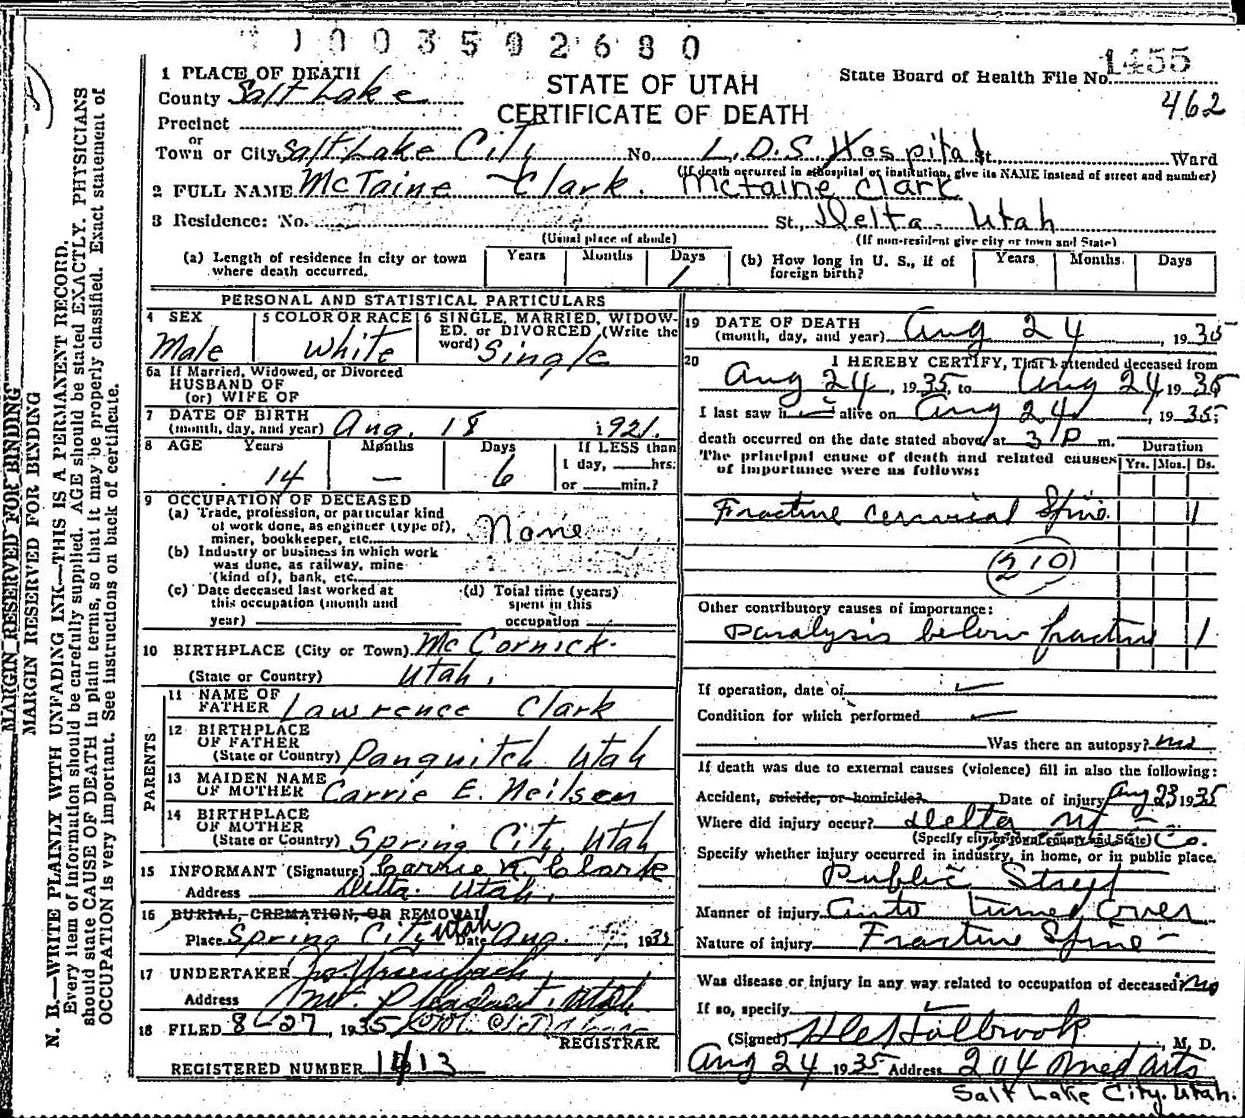 1003592680
1455
STATE OF UTAH
CERTIFICATE OF DEATH
State Board of Health File No.
462
1 PLACE OF DEATH
County Salt Lake
Precinct
or
Town or City Salt Lake City No. L.D.S. Hospital St., Ward
(If death occurred in a hospital or institution, give its NAME instead of street and number)
2 FULL NAME McTaine Clark. McTaine Clark
3 Residence: No. St., Delta - Utah
(Usual place of abode) (If non-resident give city or town and State)
(a) Length of residence in city or town where death occurred. Years Months Days 1
(b) How long in U. S., if of foreign birth? Years Months Days
PERSONAL AND STATISTICAL PARTICULARS
4 SEX Male
5 COLOR OR RACE White
6 SINGLE, MARRIED, WIDOWED, or DIVORCED (Write the word) Single
6a If Married, Widowed, or Divorced
HUSBAND OF
(or) WIFE OF
7 DATE OF BIRTH
(month, day, and year) Aug. 18 1921.
8 AGE Years 14 Months — Days 6 If LESS than
1 day, hrs.
or min.?
9 OCCUPATION OF DECEASED
(a) Trade, profession, or particular kind
of work done, as engineer (type of),
miner, bookkeeper, etc. None
(b) Industry or business in which work
was done, as railway, mine
(kind of), bank, etc.
(c) Date deceased last worked at
this occupation (month and
year)
(d) Total time (years)
spent in this
occupation
10 BIRTHPLACE (City or Town) McCornick.
(State or Country) Utah.
PARENTS
11 NAME OF
FATHER Lawrence Clark
12 BIRTHPLACE
OF FATHER
(State or Country) Panquitch Utah
13 MAIDEN NAME
OF MOTHER Carrie E. Neilsen
14 BIRTHPLACE
OF MOTHER
(State or Country) Spring City, Utah
15 INFORMANT (Signature) Carrie N. Clark
Address Delta. Utah.
16 BURIAL, CREMATION, OR REMOVAL
Place Spring City Utah Date Aug. 1935
17 UNDERTAKER
Address Mt. Pleasant, Utah
18 FILED 8-27, 1935
REGISTRAR
REGISTERED NUMBER 1413
19 DATE OF DEATH
(month, day, and year) Aug 24, 1935
20 I HEREBY CERTIFY, That I attended deceased from
Aug 24, 1935, to Aug 24, 1935
I last saw h alive on Aug 24, 1935
death occurred on the date stated above, at 3 P m.
The principal cause of death and related causes
of importance were as follows:
Duration
Yrs. Mos. Ds.
Fracture cervical Spine 1
210
Other contributory causes of importance:
Paralysis below fracture 1
If operation, date of
Condition for which performed
Was there an autopsy? no
If death was due to external causes (violence) fill in also the following:
Accident, suicide, or homicide? Date of injury Aug 23 1935
Where did injury occur? Delta Ut - Co.
(Specify city or town, county and State)
Specify whether injury occurred in industry, in home, or in public place.
Public Street
Manner of injury Auto turned over
Nature of injury Fracture Spine -
Was disease or injury in any way related to occupation of deceased? no
If so, specify
(Signed) Holbrook, M. D.
Aug 24 1935 Address 204 Med Arts
Salt Lake City, Utah.
MARGIN RESERVED FOR BINDING
MARGIN RESERVED FOR BINDING
N. B.—WRITE PLAINLY WITH UNFADING INK—THIS IS A PERMANENT RECORD.
Every item of information should be carefully supplied. AGE should be stated EXACTLY. PHYSICIANS
should state CAUSE OF DEATH in plain terms, so that it may be properly classified. Exact statement of
OCCUPATION is very important. See instructions on back of certificate.